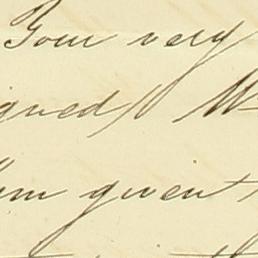 Your very
igned)
given